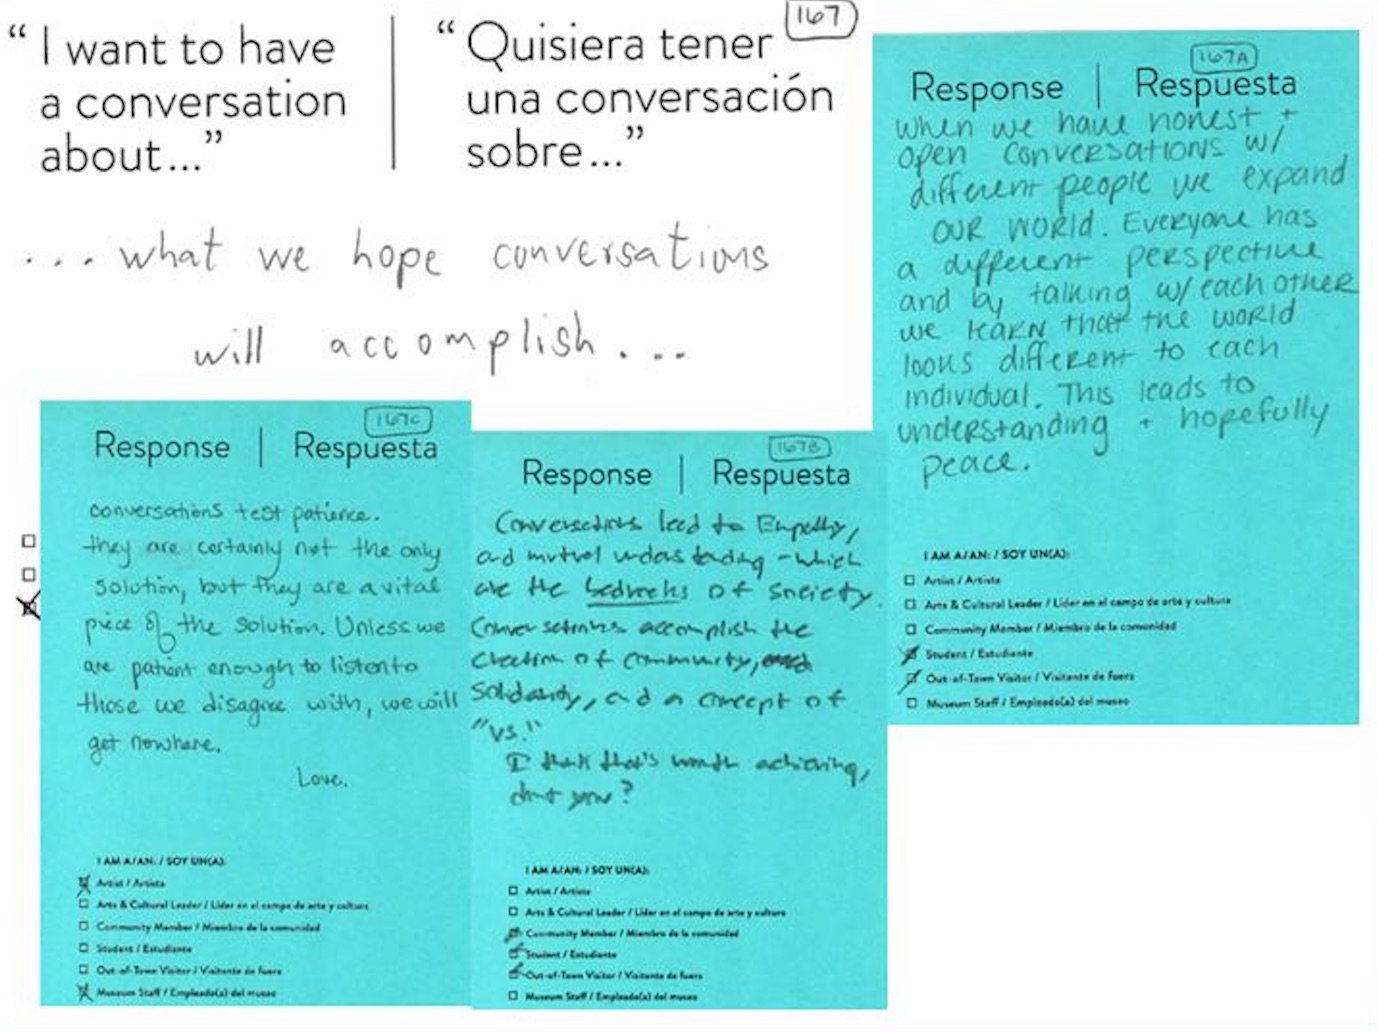 167
“ I want to have
a conversation
about...”
“ Quisiera tener
una conversación
sobre...”
... what we hope conversations
will accomplish...
167A
Response | Respuesta
when we have honest +
open conversations w/
different people we expand
our world. Everyone has
a different perspective
and by talking w/ each other
we learn that the world
looks different to each
individual. This leads to
understanding + hopefully
peace.
I AM A/AN: / SOY UN(A):
Artist / Artista
Arts & Cultural Leader / Líder en el campo de arte y cultura
Community Member / Miembro de la comunidad
Student / Estudiante
Out-of-Town Visitor / Visitante de fuera
Museum Staff / Empleado(a) del museo
167C
Response | Respuesta
conversations test patience.
they are certainly not the only
solution, but they are a vital
piece of the solution. Unless we
are patient enough to listen to
those we disagree with, we will
get nowhere.
Love.
I AM A/AN: / SOY UN(A):
Artist / Artista
Arts & Cultural Leader / Líder en el campo de arte y cultura
Community Member / Miembro de la comunidad
Student / Estudiante
Out-of-Town Visitor / Visitante de fuera
Museum Staff / Empleado(a) del museo
167B
Response | Respuesta
Conversations lead to Empathy,
and mutual understanding - which
are the bedrocks of society.
Conversations accomplish the
creation of community,
solidarity, and a concept of
"us."
I think that's worth achieving,
don't you?
I AM A/AN: / SOY UN(A):
Artist / Artista
Arts & Cultural Leader / Líder en el campo de arte y cultura
Community Member / Miembro de la comunidad
Student / Estudiante
Out-of-Town Visitor / Visitante de fuera
Museum Staff / Empleado(a) del museo